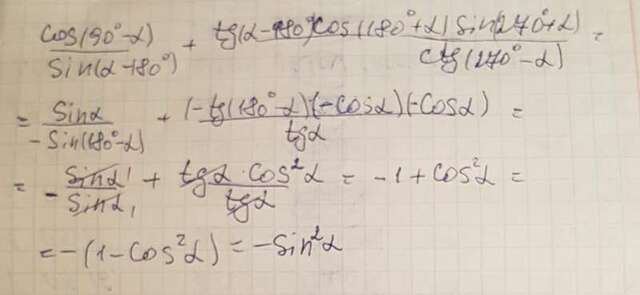 cos(90°-α)/sin(α-180°) + tg(α-180°)cos(180°+α)sin(270°+α)/ctg(270°-α) =
= sinα/-sin(180°-α) + (-tg(180°-α)(-cosα)(-cosα)/tgα =
= - sinα 1/sinα 1 + tgα · cos²α/tgα = -1 + cos²α =
= -(1-cos²α) = -sin²α